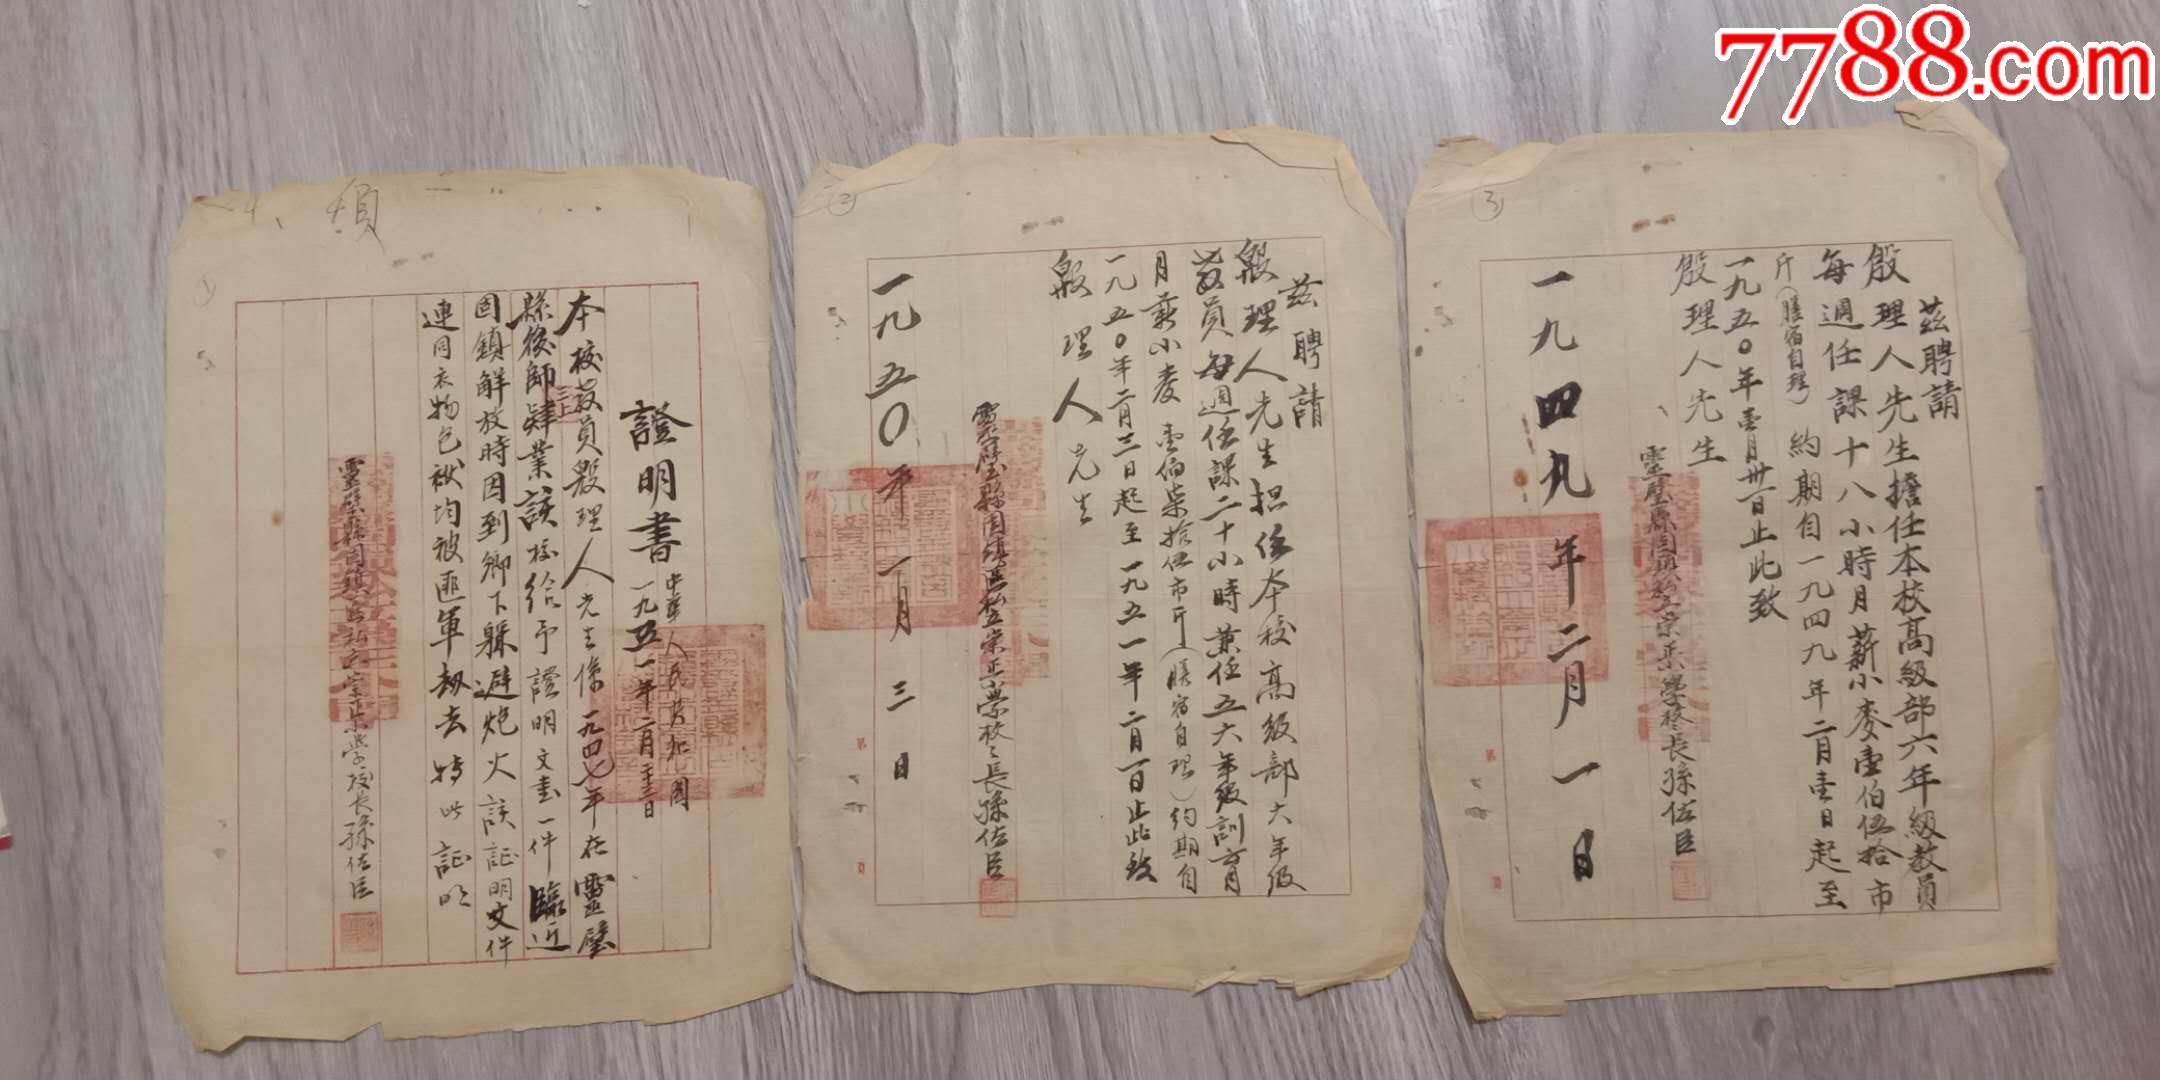 7788.com
③
茲聘請
殷理人先生擔任本校高級部六年級教員
每週任課十八小時月薪小麥壹伯伍拾市
斤（膳宿自理）約期自一九四九年二月壹日起至
一九五〇年壹月卅一日止此致
殷理人先生
靈璧縣固鎮私立崇正學校長孫佐臣
一九四九年二月一日
②
茲聘請
殷理人先生担任本校高級部六年級
教員每週任課二十小時兼任五六年級訓育
月薪小麥壹伯柒拾伍市斤（膳宿自理）約期自
一九五〇年二月三日起至一九五一年二月一日止此致
殷理人先生
靈璧縣固鎮區私立崇正學校校長孫佐臣
一九五〇年一月三日
4、
證明書
中華人民共和國
本校教員殷理人先生係一九四七年在靈璧
縣後師肄業該校給予證明文書一件臨近
固鎮解放時因到鄉下躲避炮火該証明文件
連同衣物包袱均被匪軍劫去特此証明
靈璧縣固鎮區私立崇正學校長孫佐臣